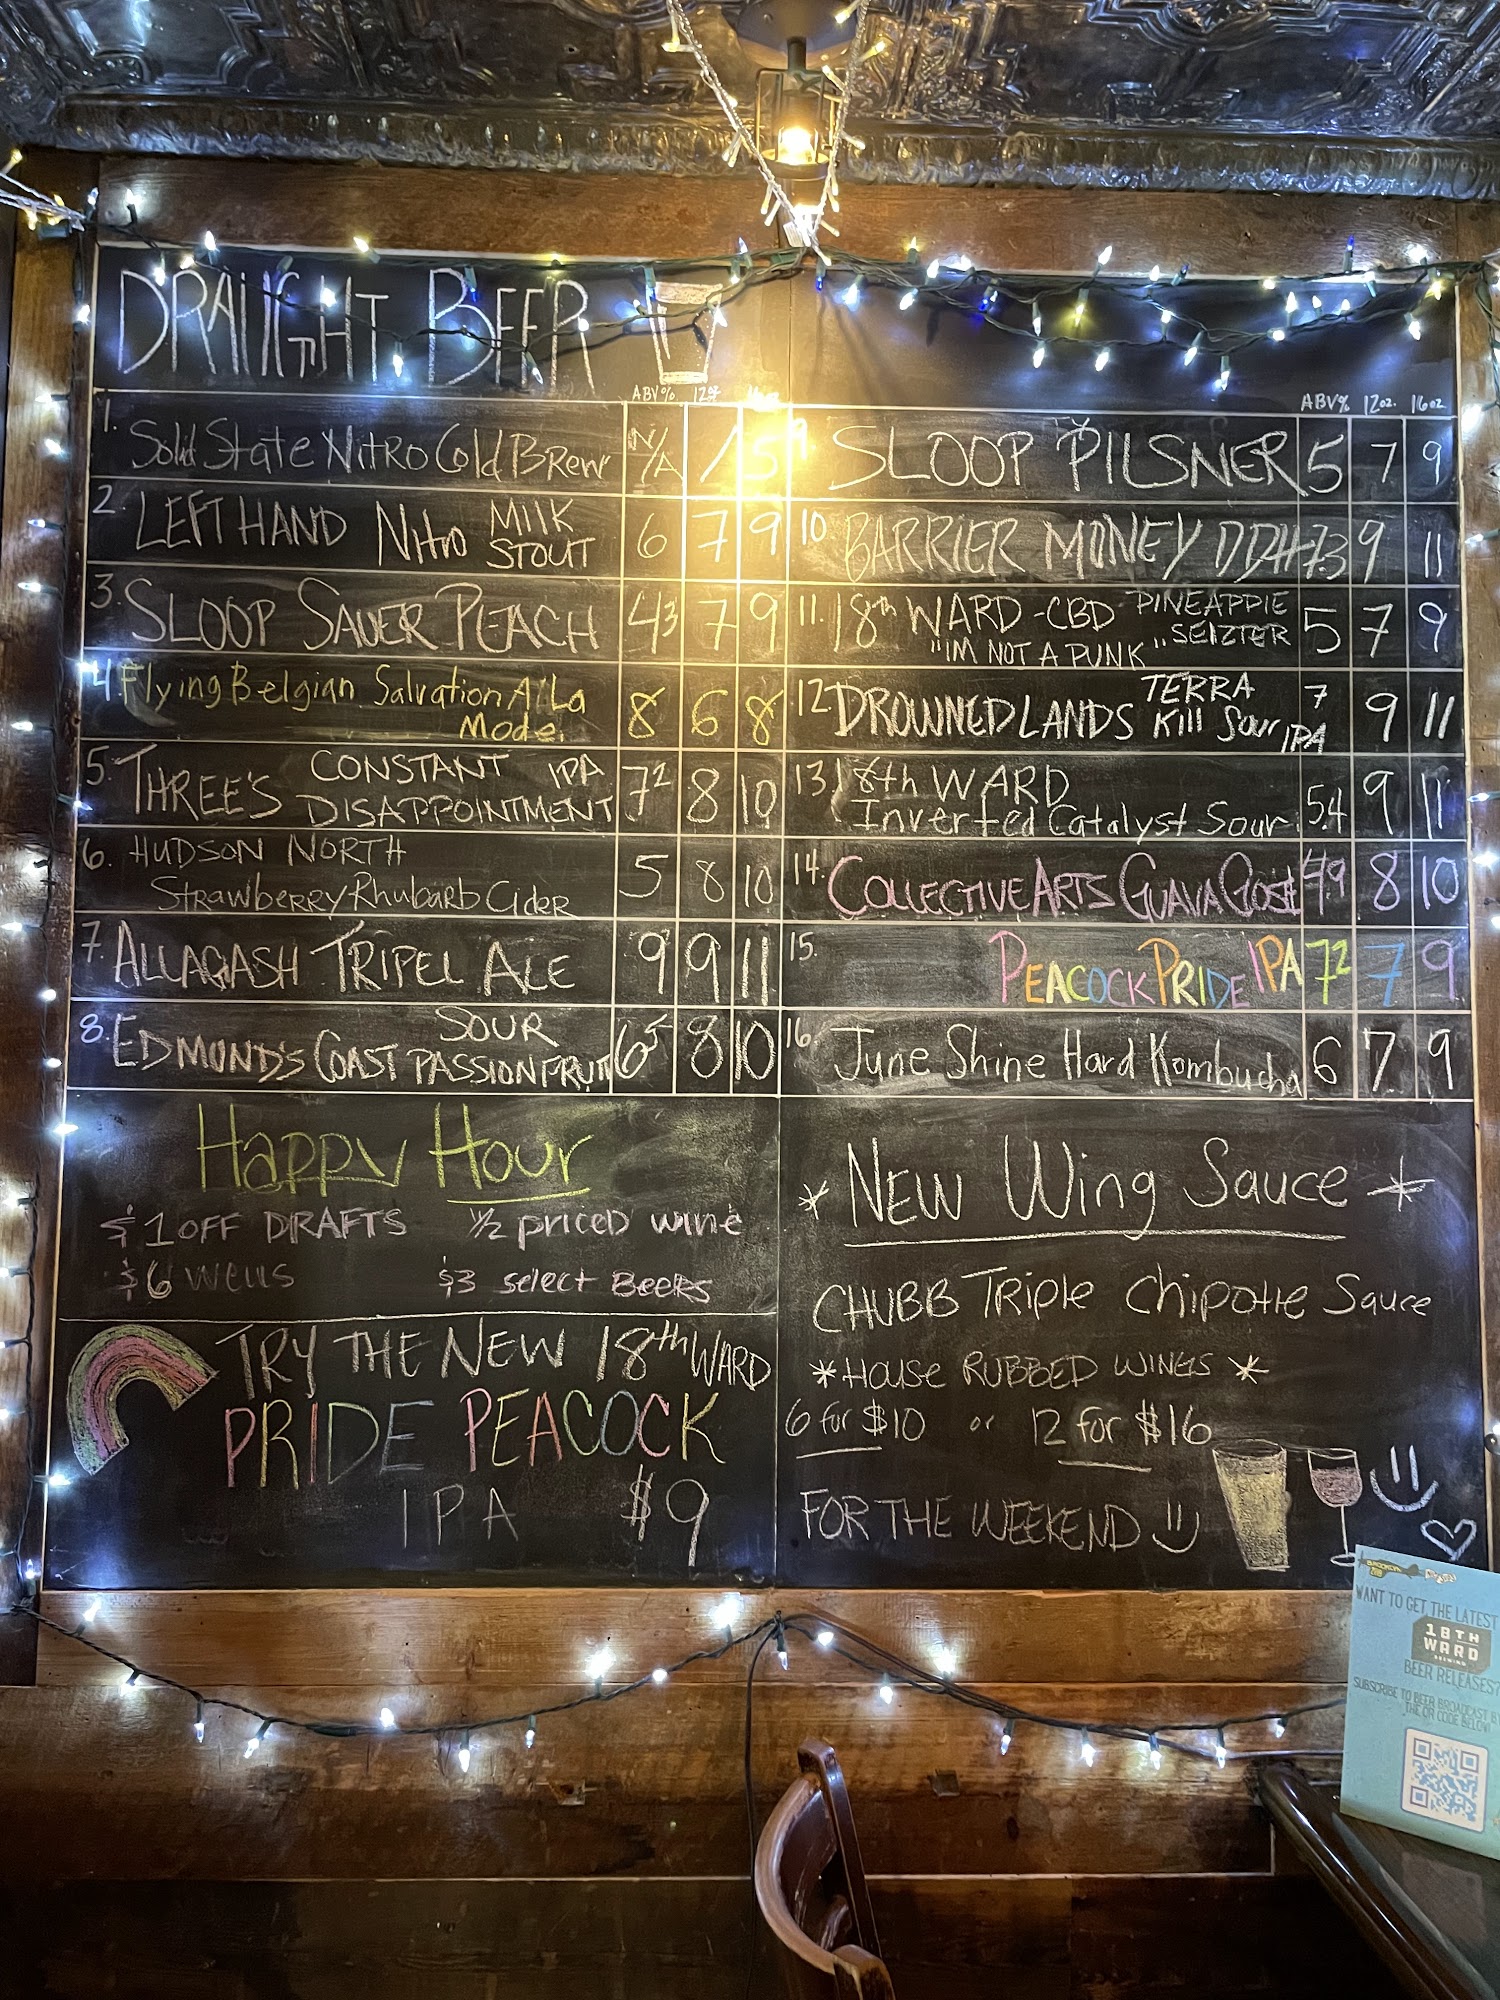 DRAUGHT BEER
ABV% 12oz
1. Solid State Nitro Cold Brew N/A / 5
2. LEFT HAND Nitro MILK STOUT 6 7 9
3. SLOOP SAUER PEACH 4.3 7 9
4 Flying Belgian Salvation A'La Mode. 8 6 8
5. THREE'S CONSTANT DISAPPOINTMENT IPA 7.2 8 10
6. HUDSON NORTH
Strawberry Rhubarb Cider 5 8 10
7. ALLAGASH TRIPEL ALE 9 9 11
8. EDMOND'S COAST SOUR PASSIONFRUIT 6.5 8 10
ABV% 12oz. 16oz
9 SLOOP PILSNER 5 7 9
10 BARRIER MONEY DDH 7.3 9 11
11. 18th WARD -CBD PINEAPPLE SELZTER
"IM NOT A PUNK" 5 7 9
12. DROWNED LANDS TERRA Kill Sour IPA 7 9 11
13. 18th WARD
Inverted Catalyst Sour 5.4 9 11
14. COLLECTIVE ARTS GUAVA GOSE 4.9 8 10
15. PEACOCK PRIDE IPA 7.2 7 9
16. June Shine Hard Kombucha 6 7 9
Happy Hour
$1 OFF DRAFTS 1/2 priced wine
$6 wells $3 select Beers
TRY THE NEW 18th WARD
PRIDE PEACOCK
IPA $9
* NEW Wing Sauce *
CHUBB Triple Chipotle Sauce
*HOUSE RUBBED WINGS *
6 for $10 or 12 for $16
FOR THE WEEKEND
WANT TO GET THE LATEST
18TH
WARD
BREWING
BEER RELEASES?
SUBSCRIBE TO BEER BROADCAST B
THE QR CODE BELOW